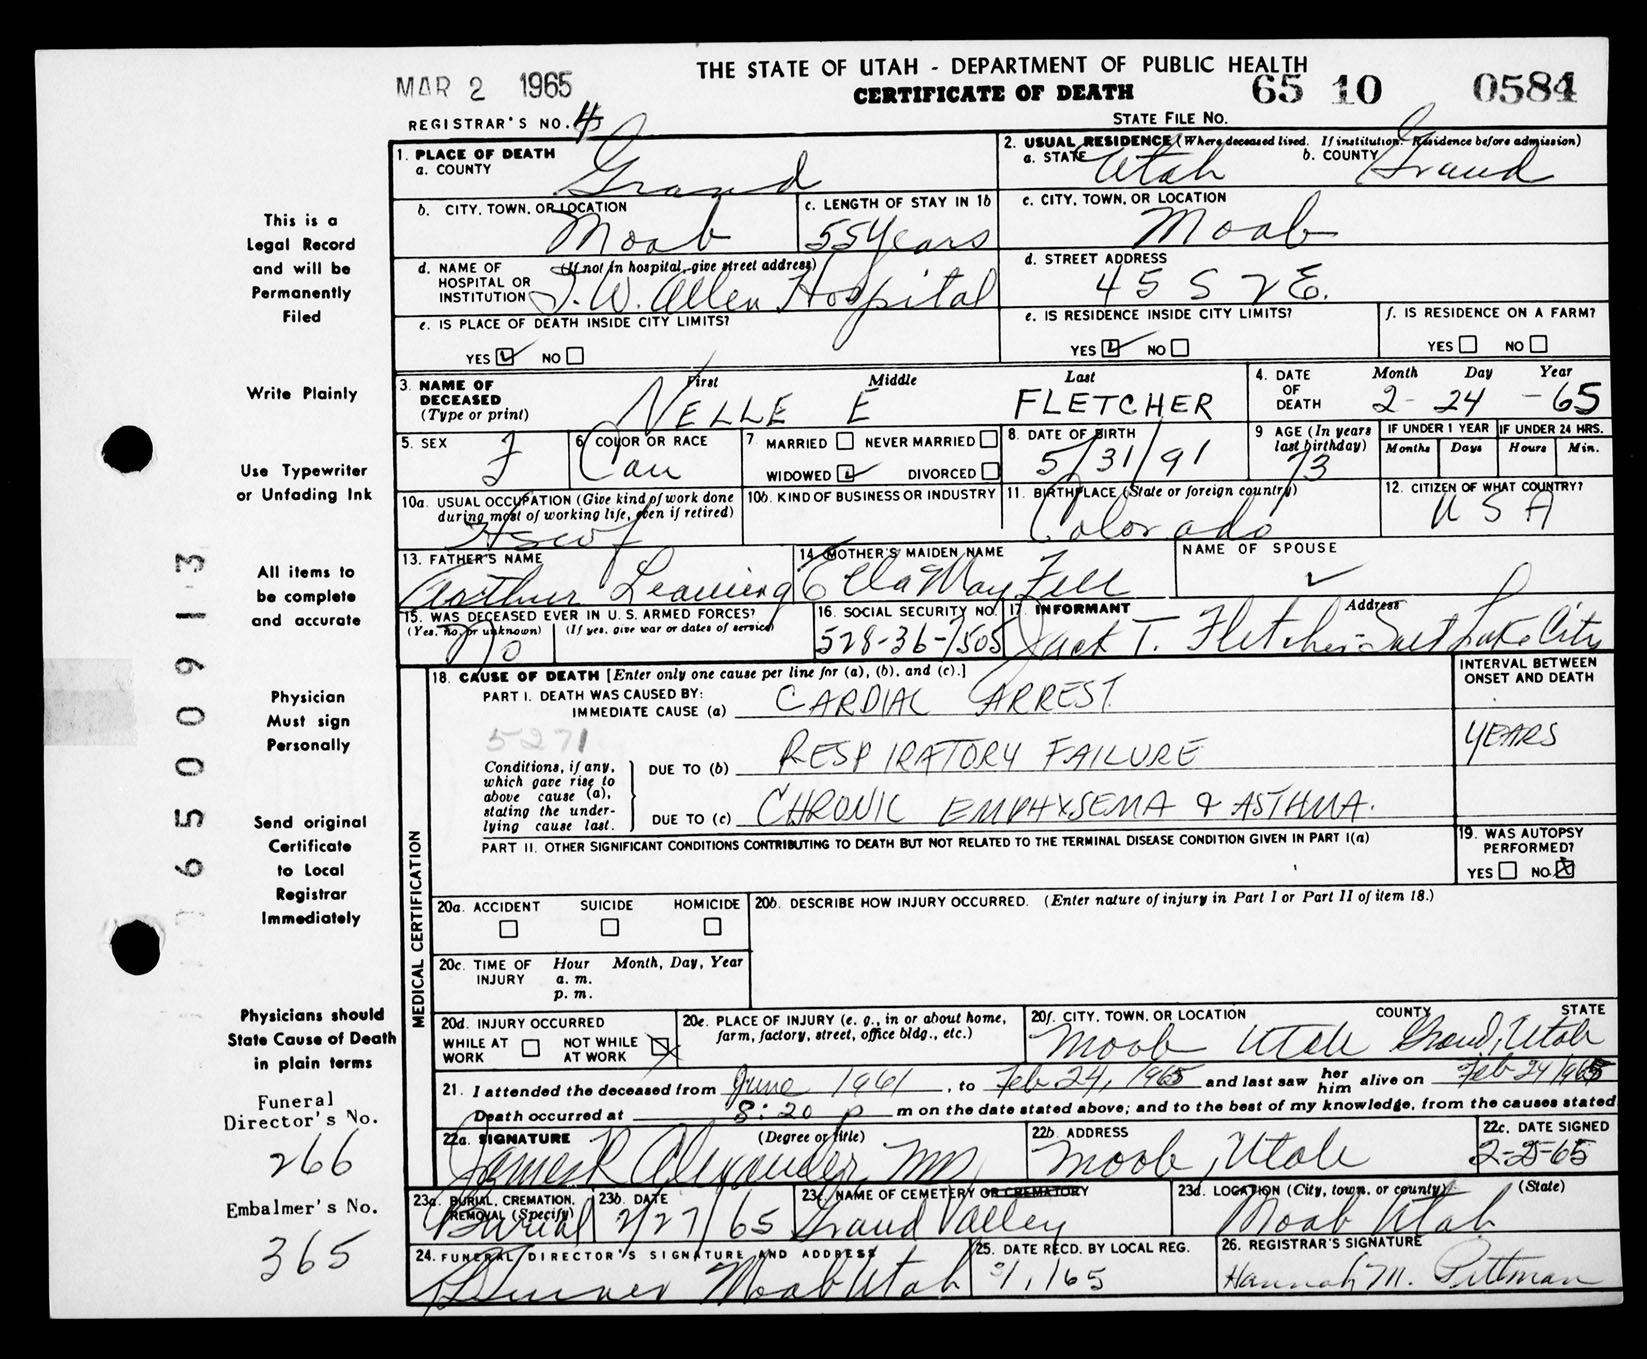 THE STATE OF UTAH - DEPARTMENT OF PUBLIC HEALTH
MAR 2 1965
CERTIFICATE OF DEATH
65 10 0584
REGISTRAR'S NO. 4
STATE FILE NO.
1. PLACE OF DEATH
a. COUNTY Grand
2. USUAL RESIDENCE (Where deceased lived. If institution: Residence before admission)
a. STATE Utah b. COUNTY Grand
b. CITY, TOWN, OR LOCATION Moab
c. LENGTH OF STAY IN 1b 55 Years
c. CITY, TOWN, OR LOCATION Moab
d. NAME OF HOSPITAL OR INSTITUTION (If not in hospital, give street address) I. W. Allen Hospital
d. STREET ADDRESS 45 S 2 E.
e. IS PLACE OF DEATH INSIDE CITY LIMITS?
YES ☑ NO ☐
e. IS RESIDENCE INSIDE CITY LIMITS?
YES ☑ NO ☐
f. IS RESIDENCE ON A FARM?
YES ☐ NO ☐
3. NAME OF DECEASED (Type or print)
First Middle Last
NELLE E FLETCHER
4. DATE OF DEATH Month Day Year
2- 24 -65
5. SEX F
6. COLOR OR RACE Cau
7. MARRIED ☐ NEVER MARRIED ☐
WIDOWED ☑ DIVORCED ☐
8. DATE OF BIRTH 5/31/91
9. AGE (In years last birthday) 73
IF UNDER 1 YEAR Months Days
IF UNDER 24 HRS. Hours Min.
10a. USUAL OCCUPATION (Give kind of work done during most of working life, even if retired) Hswf
10b. KIND OF BUSINESS OR INDUSTRY
11. BIRTHPLACE (State or foreign country) Colorado
12. CITIZEN OF WHAT COUNTRY? USA
13. FATHER'S NAME Arthur Leaming
14. MOTHER'S MAIDEN NAME Ella May
NAME OF SPOUSE
15. WAS DECEASED EVER IN U. S. ARMED FORCES?
(Yes, no, or unknown) (If yes, give war or dates of service)
No
16. SOCIAL SECURITY NO. 528-36-7505
17. INFORMANT Address
Jack T. Fletcher - Salt Lake City
18. CAUSE OF DEATH [Enter only one cause per line for (a), (b), and (c).]
INTERVAL BETWEEN ONSET AND DEATH
PART I. DEATH WAS CAUSED BY:
IMMEDIATE CAUSE (a) CARDIAC ARREST.
5271
Conditions, if any, which gave rise to above cause (a), stating the underlying cause last.
DUE TO (b) RESPIRATORY FAILURE YEARS
DUE TO (c) CHRONIC EMPHYSEMA & ASTHMA.
PART II. OTHER SIGNIFICANT CONDITIONS CONTRIBUTING TO DEATH BUT NOT RELATED TO THE TERMINAL DISEASE CONDITION GIVEN IN PART I(a)
19. WAS AUTOPSY PERFORMED?
YES ☐ NO ☒
MEDICAL CERTIFICATION
20a. ACCIDENT SUICIDE HOMICIDE
☐ ☐ ☐
20b. DESCRIBE HOW INJURY OCCURRED. (Enter nature of injury in Part I or Part II of item 18.)
20c. TIME OF INJURY Hour a. m. p. m. Month, Day, Year
20d. INJURY OCCURRED
WHILE AT WORK ☐ NOT WHILE AT WORK ☒
20e. PLACE OF INJURY (e. g., in or about home, farm, factory, street, office bldg., etc.)
20f. CITY, TOWN, OR LOCATION COUNTY STATE
Moab Utah Grand, Utah
21. I attended the deceased from June 1961, to Feb 24, 1965 and last saw her him alive on Feb 24 1965
Death occurred at 8:20 p m on the date stated above; and to the best of my knowledge, from the causes stated
22a. SIGNATURE (Degree or title)
James R Alexander MD
22b. ADDRESS Moab, Utah
22c. DATE SIGNED 2-25-65
23a. BURIAL, CREMATION, REMOVAL (Specify) Burial
23b. DATE 2/27/65
23c. NAME OF CEMETERY OR CREMATORY Grand Valley
23d. LOCATION (City, town, or county) (State)
Moab Utah
24. FUNERAL DIRECTOR'S SIGNATURE AND ADDRESS
Moab Utah
25. DATE RECD. BY LOCAL REG.
26. REGISTRAR'S SIGNATURE
Hannah M. Pittman
This is a
Legal Record
and will be
Permanently
Filed
Write Plainly
Use Typewriter
or Unfading Ink
All items to
be complete
and accurate
Physician
Must sign
Personally
Send original
Certificate
to Local
Registrar
Immediately
Physicians should
State Cause of Death
in plain terms
Funeral
Director's No.
266
Embalmer's No.
365
650091 3